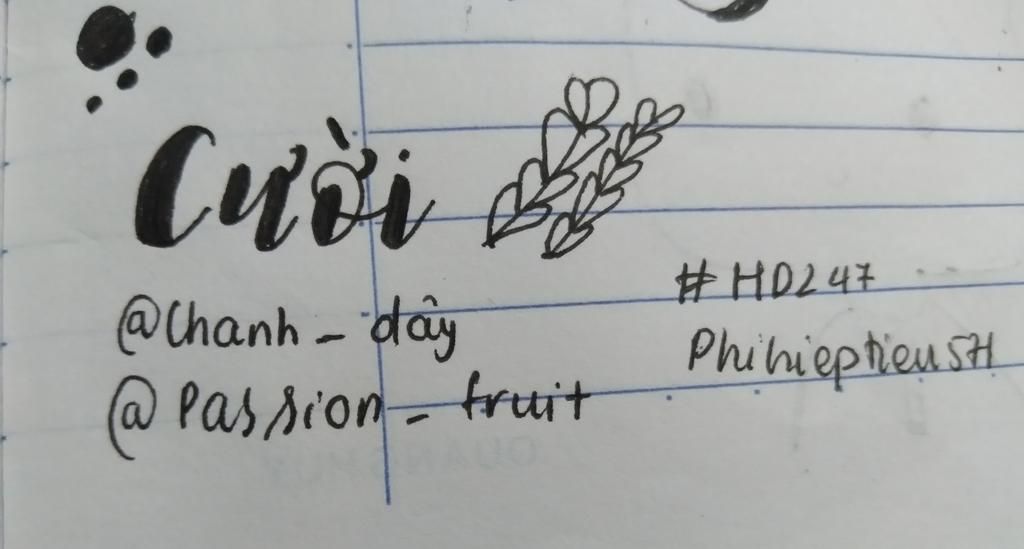 Cười
@Chanh_dây
@Passion_fruit
#HD247
Phihieptieu5H